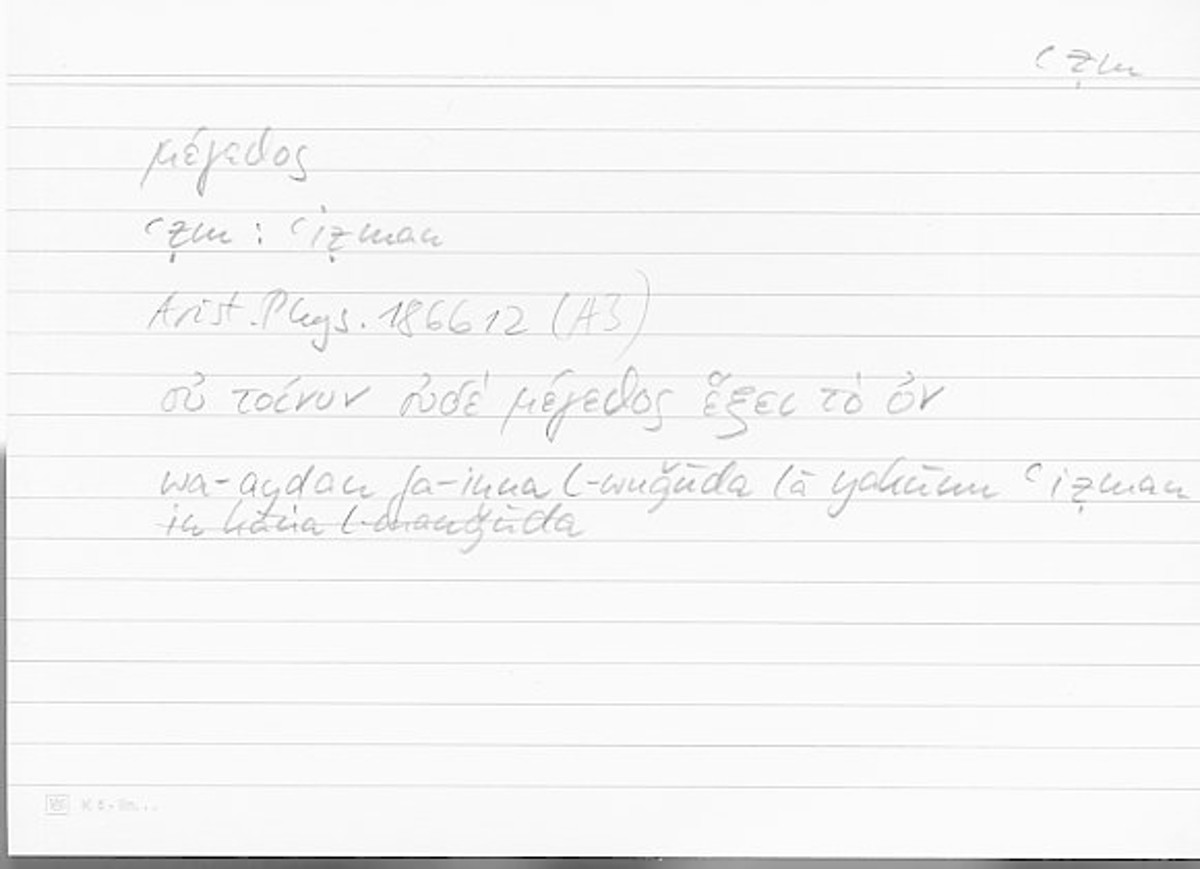 ʿẓm
μέγεθος
ʿẓm : ʿiẓman
Arist. Phys. 186b12 (A3)
οὐ τοίνυν οὐδὲ μέγεθος ἕξει τὸ ὄν
wa-aydan fa-inna l-wuǧūda lā yakūnu ʿiẓman
in kāna l-mauǧūda